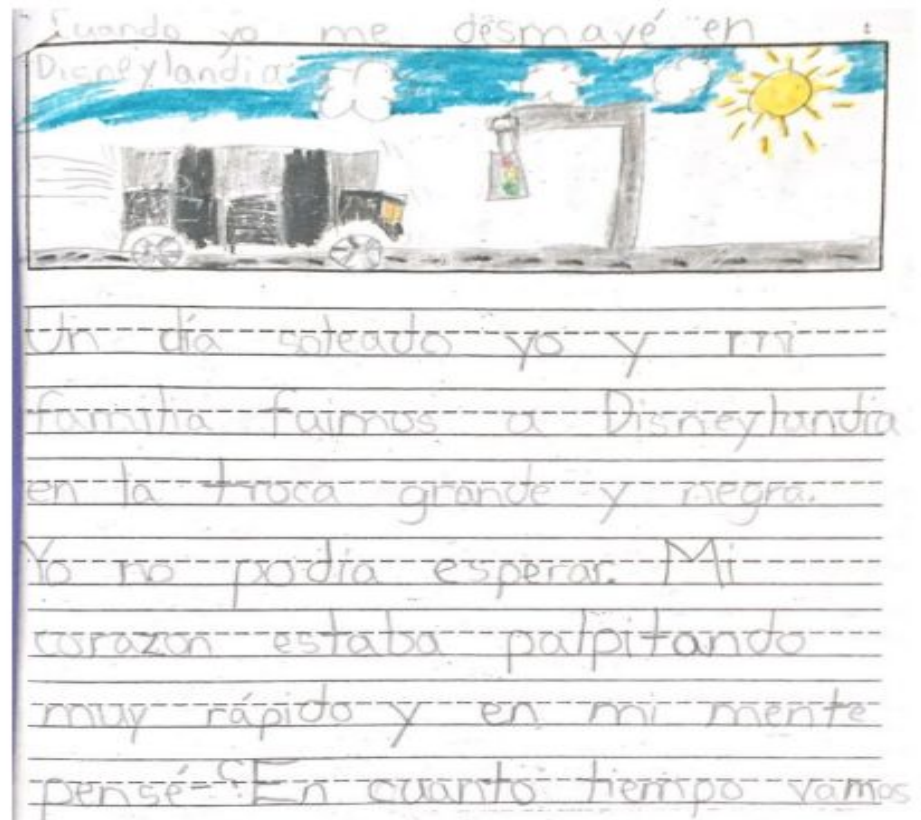 Cuando yo me desmayé en
Disneylandia
Un día soleado yo y mi
familia fuimos a Disneylandia
en la troca grande y negra.
Yo no podía esperar. Mi
corazon estaba palpitando
muy rápido y en mi mente
pensé-"En cuanto tiempo vamos